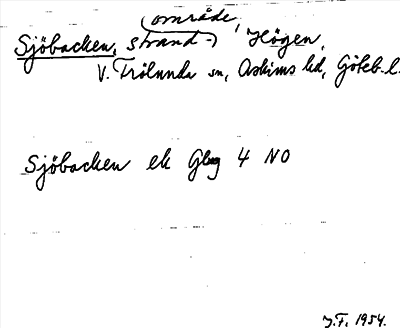 område,
Sjöbacken, strand-) Högen,
V. Frölunda sn, Askims hd, Göteb. l.
Sjöbacken ek Gbg 4 NO
J.F. 1954.